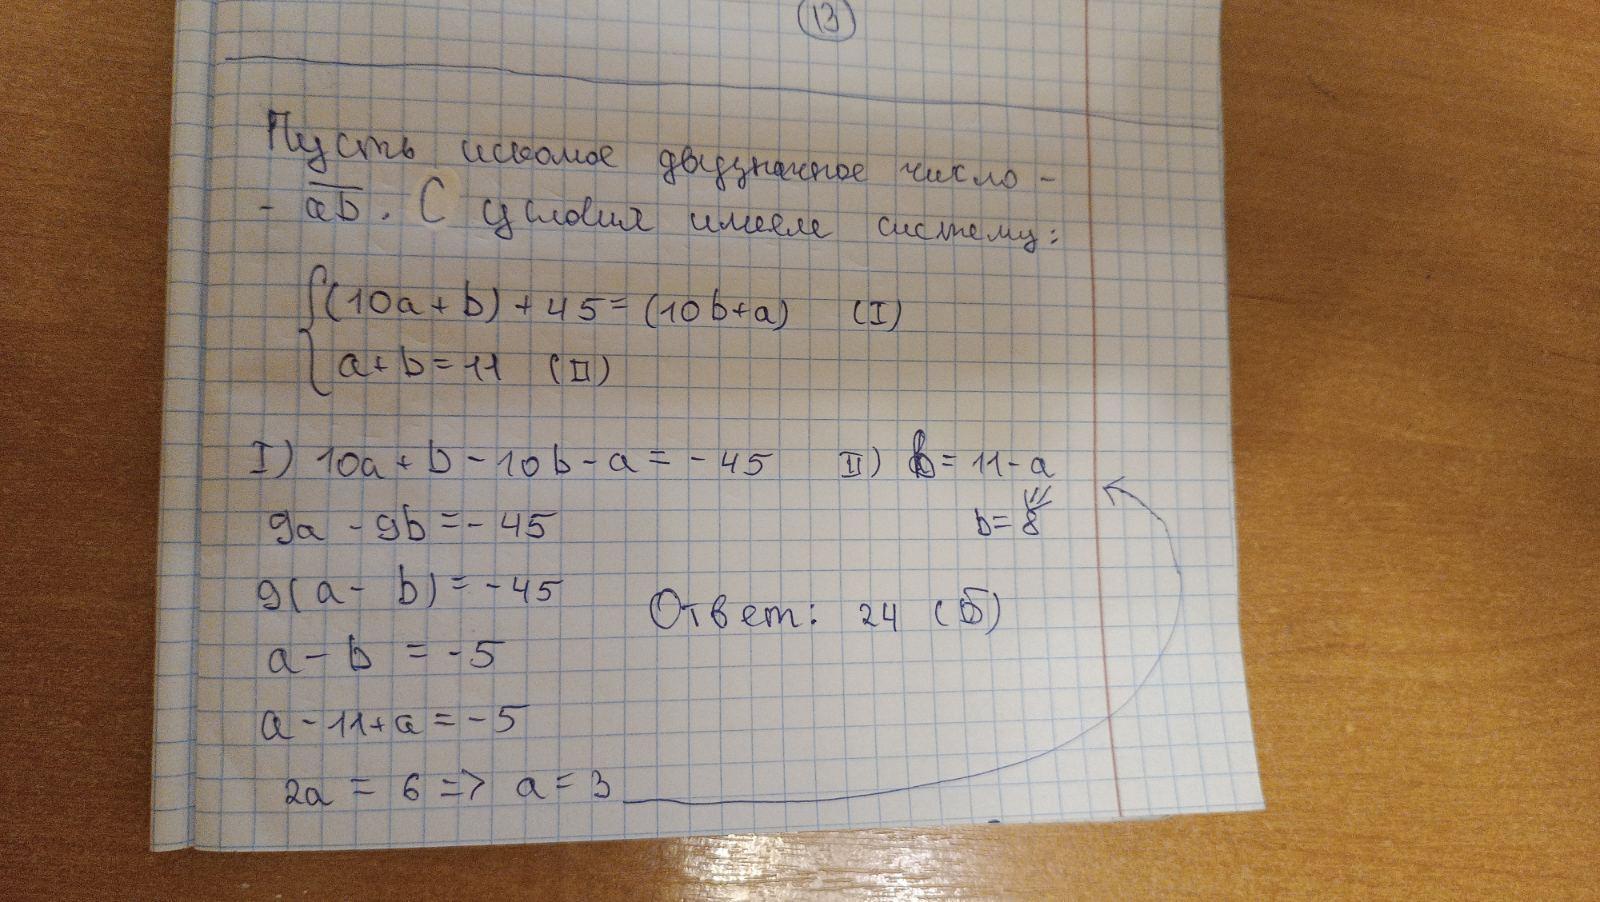 13
Пусть искомое двузначное число -
- ab. С условия имеем систему:
(10a + b) + 45 = (10b+a) (I)
a+b = 11 (II)
I) 10a + b - 10b - a = - 45 II) b = 11 - a
9a - 9b = - 45
b = 8
9(a - b) = - 45
Ответ: 24 (Б)
a - b = - 5
a - 11 + a = - 5
2a = 6 => a = 3